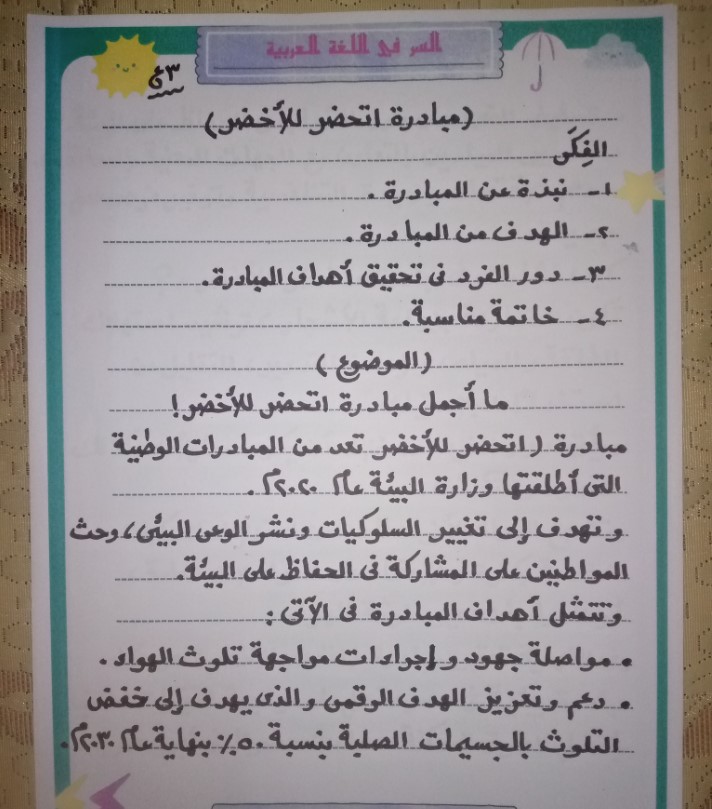 السر في اللغة العربية
٣ع
(مبادرة اتحضر للأخضر)
الفِكَر
١- نبذة عن المبادرة.
٢- الهدف من المبادرة.
٣- دور الفرد فى تحقيق أهداف المبادرة.
٤- خاتمة مناسبة.
(الموضوع)
ما أجمل مبادرة اتحضر للأخضر!
مبادرة (اتحضر للأخضر تعد من المبادرات الوطنية
التى أطلقتها وزارة البيئة عام ٢٠٢٠م.
وتهدف إلى تغيير السلوكيات ونشر الوعى البيئى، وحث
المواطنين على المشاركة فى الحفاظ على البيئة.
وتتمثل أهداف المبادرة فى الآتى:
• مواصلة جهود وإجراءات مواجهة تلوث الهواء.
• دعم وتعزيز الهدف الوقمى والذى يهدف إلى خفض
التلوث بالجسيمات الصلبة بنسبة ٥٠٪ بنهاية عام ٢٠٣٠م.